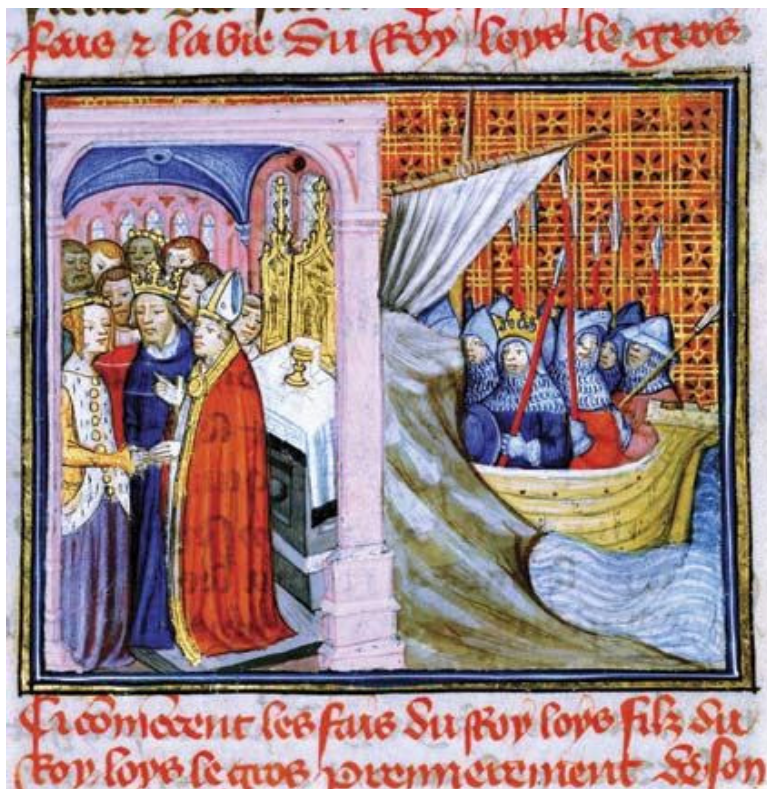 fais & la vie du Roy loys le gros
Cy cōmēcent les fais du Roy loys filz du
Roy loys le gros premierement de son